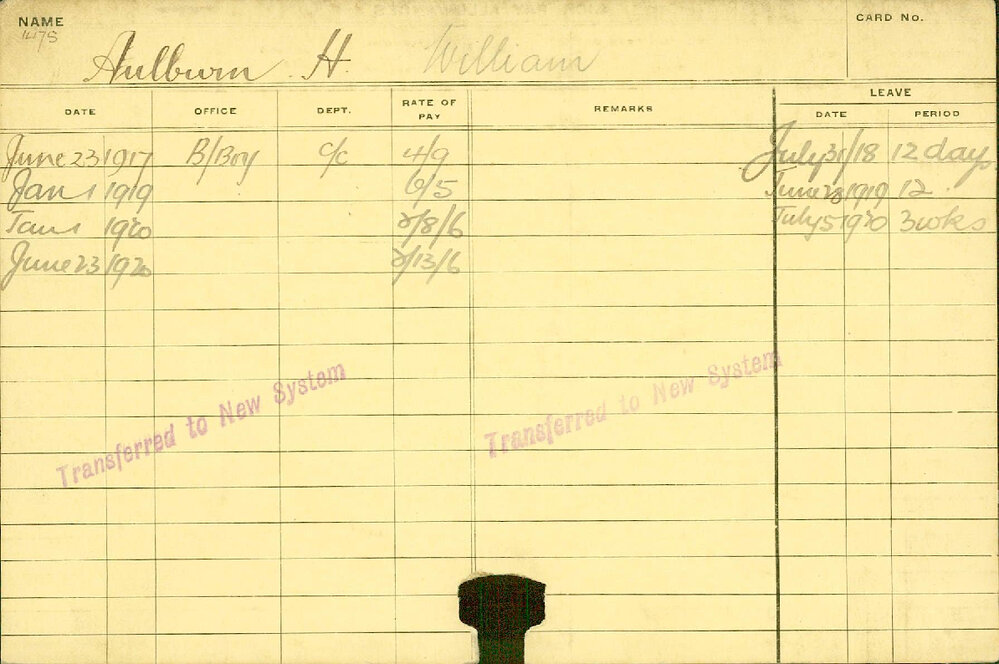 NAME
CARD No.
Aulburn H. William
LEAVE
DATE OFFICE DEPT. RATE OF PAY REMARKS DATE PERIOD
June 23 1917 B/Boy c/c 4/9 July 31/18 12 days
Jan 1 1919 6/5 June 28 1919 12
Jan 1 1920 2/8/6 July 5 1920 3 wks
June 23 1920 2/13/6
Transferred to New System
Transferred to New System